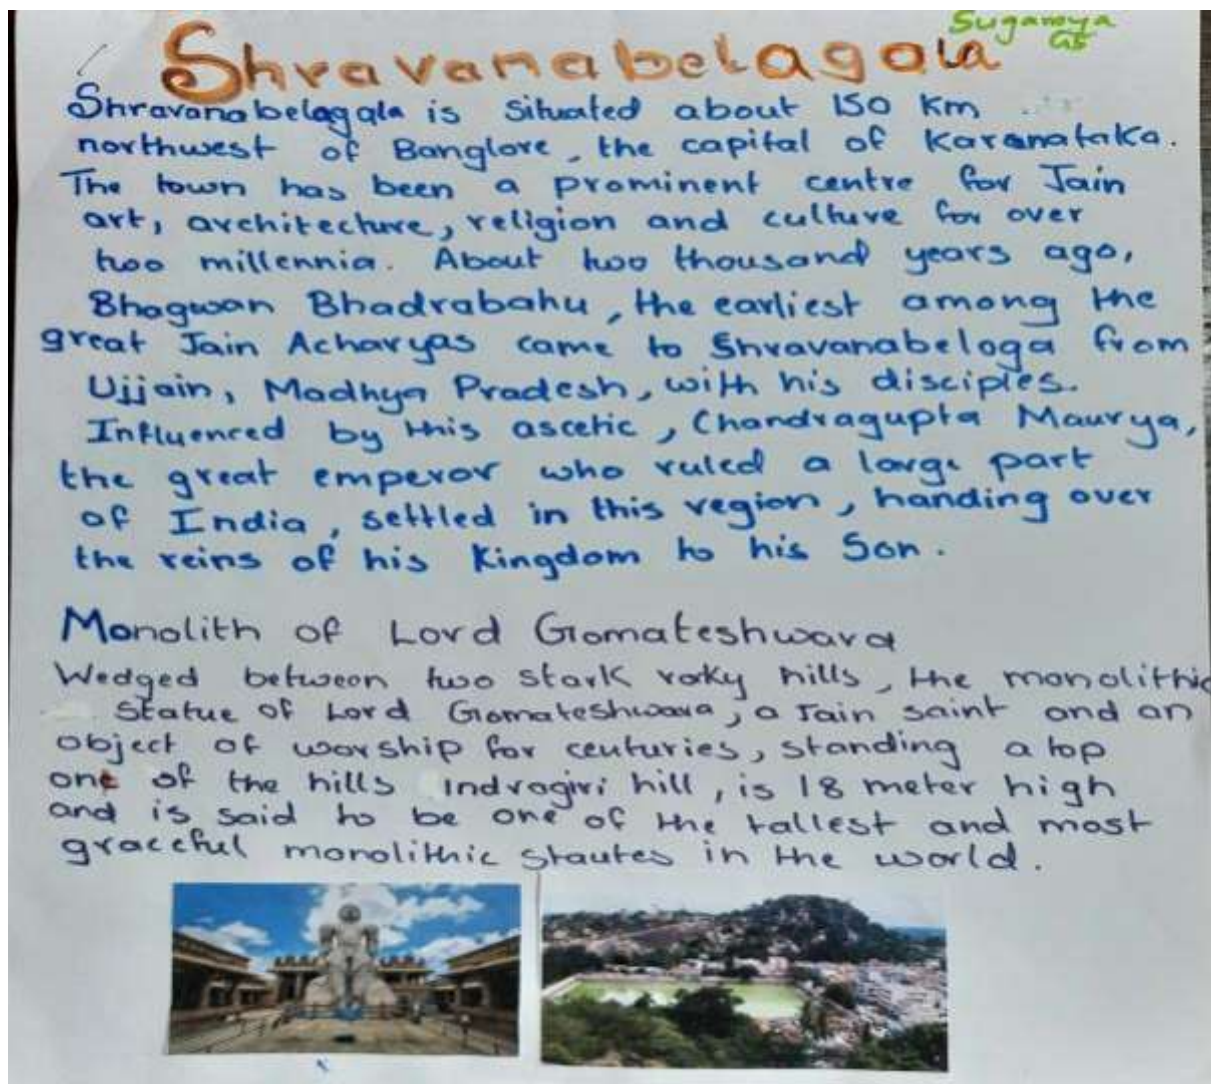 Sugamya
G5
Shravanabelagola
Shravanabelagala is situated about 150 km
northwest of Banglore, the capital of Karanataka.
The town has been a prominent centre for Jain
art, architecture, religion and culture for over
two millennia. About two thousand years ago,
Bhagwan Bhadrabahu, the earliest among the
great Jain Acharyas came to Shravanabeloga from
Ujjain, Madhya Pradesh, with his disciples.
Influenced by this ascetic, Chandragupta Maurya,
the great emperor who ruled a large part
of India, settled in this region, handing over
the reins of his Kingdom to his Son.
Monolith of Lord Gomateshwara
Wedged between two stark rocky hills, the monolithic
statue of Lord Gomateshwara, a Jain saint and an
object of worship for centuries, standing a top
one of the hills Indragiri hill, is 18 meter high
and is said to be one of the tallest and most
graceful monolithic stautes in the world.